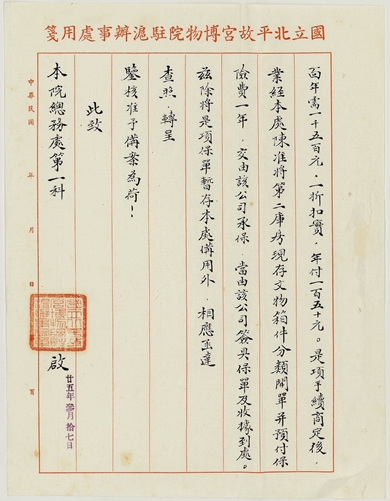 國立北平故宮博物院駐滬辦事處用箋
百年需一千五百元.一折扣實.年付一百五十元。是項手續商定後.
業經本處陳准將第二庫房現存文物箱件分類開單并預付保
險費一年.交由該公司承保.當由該公司簽具保單及收據到處。
茲除將是項保單暫存本處備用外.相應函達
查照.轉呈
鑒核准予備案為荷！
此致
本院總務處第一科
啟
廿五年 月拾七日
中華民國 年 月 日 頁